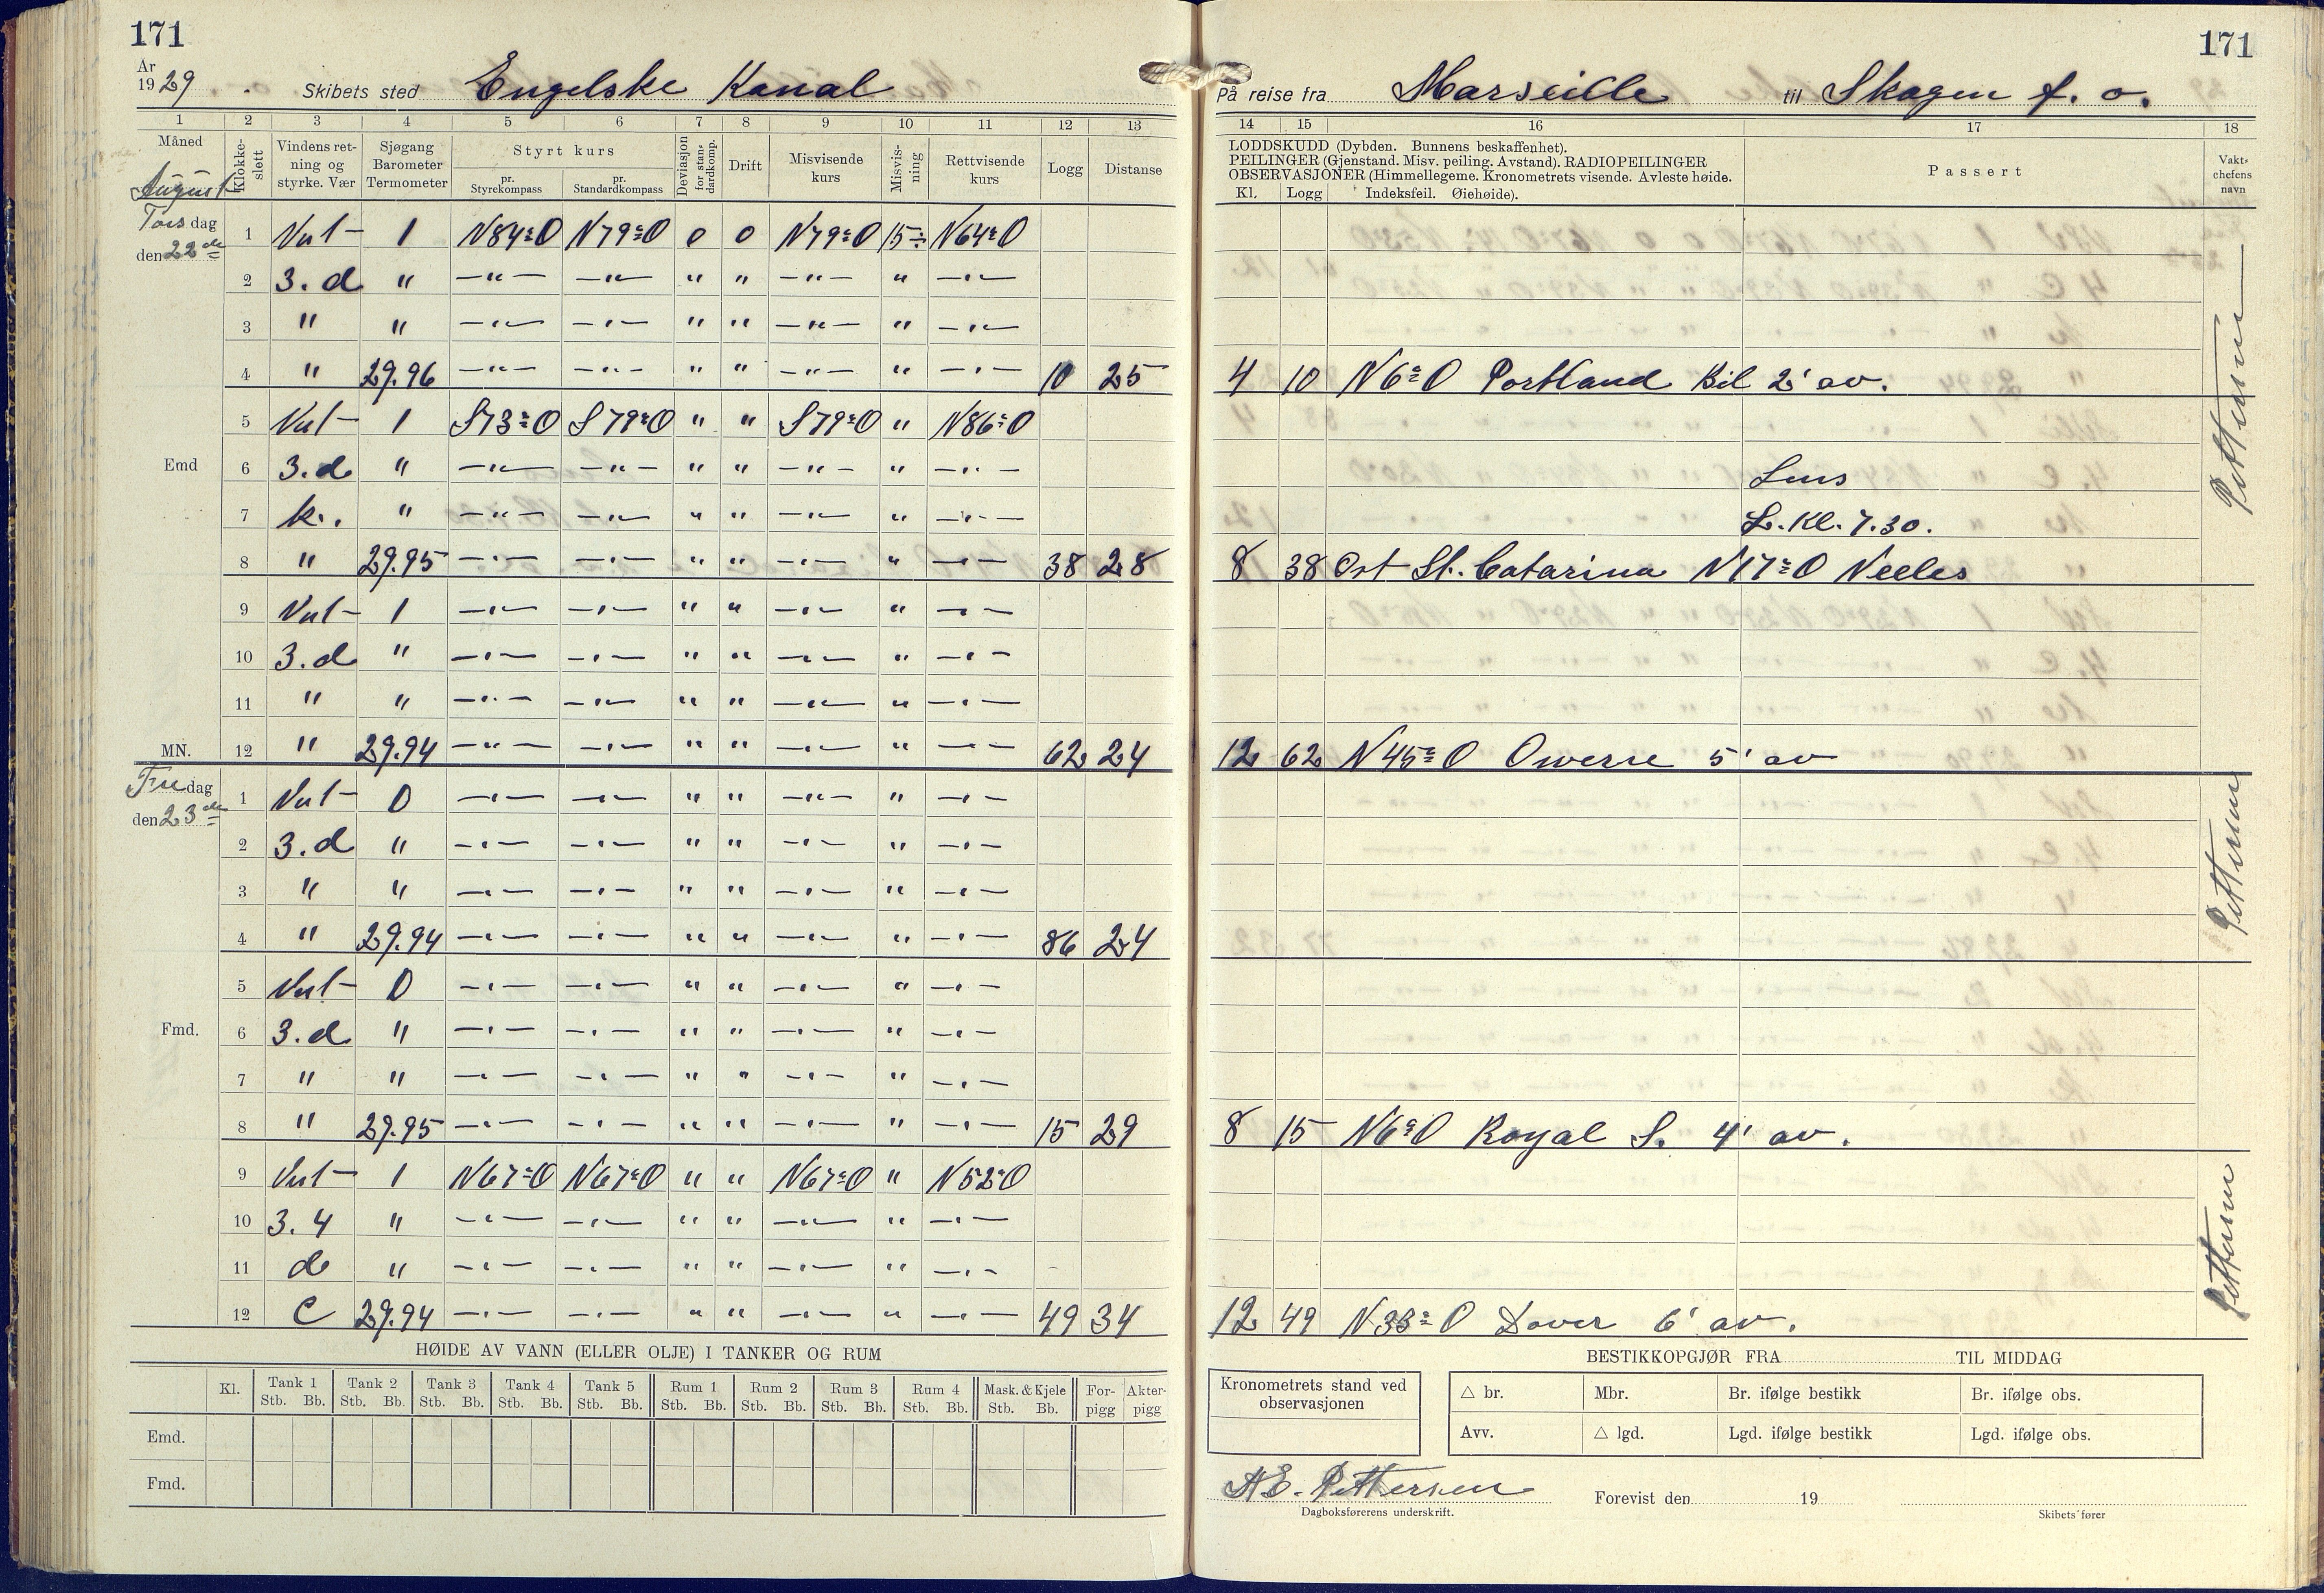 171
År
1929
Skibets sted Engelske Kanal
1 2 3 4 5 6 7 8 9 10 11 12 13
Måned
August
Klokke-slett
Vindens ret-ning og styrke. Vær
Sjøgang Barometer Termometer
Styrt kurs
pr. Styrekompass
pr. Standardkompass
Deviasjon for stan-dardkomp.
Drift
Misvisende kurs
Misvis-ning
Rettvisende kurs
Logg
Distanse
Torsdag
den 22de
1 Vest 1 N84°O N79°O 0 0 N79°O 15÷ N64°O
2 3. d " —"— —"— " " —"— " —"—
3 " " —"— —"— " " —"— " —"—
4 " 29.96 —"— —"— " " —"— " —"— 10 25
5 Vest 1 S73°O S79°O " " S79°O " N86°O
Emd
6 3. d " —"— —"— " " —"— " —"—
7 k. " —"— —"— " " —"— " —"—
8 " 29.95 —"— —"— " " —"— " —"— 38 28
9 Vest 1 —"— —"— " " —"— " —"—
10 3. d " —"— —"— " " —"— " —"—
11 " " —"— —"— " " —"— " —"—
MN. 12 " 29.94 —"— —"— " " —"— " —"— 62 24
Fredag
den 23de
1 Vest 0 —"— —"— " " —"— " —"—
2 3. d " —"— —"— " " —"— " —"—
3 " " —"— —"— " " —"— " —"—
4 " 29.94 —"— —"— " " —"— " —"— 86 24
5 Vest 0 —"— —"— " " —"— " —"—
Fmd.
6 3. d " —"— —"— " " —"— " —"—
7 " " —"— —"— " " —"— " —"—
8 " 29.95 —"— —"— " " —"— " —"— 15 29
9 Vest 1 N67°O N67°O " " N67°O " N52°O
10 3. 4 " —"— —"— " " —"— " —"—
11 d " —"— —"— " " —"— " —"—
12 C 29.94 —"— —"— " " —"— " —"— 49 34
HØIDE AV VANN (ELLER OLJE) I TANKER OG RUM
Kl. Tank 1 Tank 2 Tank 3 Tank 4 Tank 5 Rum 1 Rum 2 Rum 3 Rum 4 Mask. & Kjele For-pigg Akter-pigg
Stb. Bb. Stb. Bb. Stb. Bb. Stb. Bb. Stb. Bb. Stb. Bb. Stb. Bb. Stb. Bb. Stb. Bb. Stb. Bb.
Emd.
Fmd.
171
På reise fra Marseille til Skagen f. o.
14 15 16 17 18
LODDSKUDD (Dybden. Bunnens beskaffenhet).
PEILINGER (Gjenstand. Misv. peiling. Avstand). RADIOPEILINGER
OBSERVASJONER (Himmellegeme. Kronometrets visende. Avleste høide.
Kl. Logg Indeksfeil. Øiehøide).
Passert
Vakt-chefens navn
4 10 N6°O Portland Bil 2' av.
L. Kl. 7.30.
8 38 Ost St. Catarina N17°O Neeles
12 62 N45°O Owerse 5' av
8 15 N6°O Royal S. 4' av.
12 49 N33°O Dover 6' av.
BESTIKKOPGJØR FRA TIL MIDDAG
Kronometrets stand ved observasjonen
△ br. Mbr. Br. ifølge bestikk Br. ifølge obs.
Avv. △ lgd. Lgd. ifølge bestikk Lgd. ifølge obs.
A E. Pettersen
Dagboksførerens underskrift.
Forevist den 19
Skibets fører